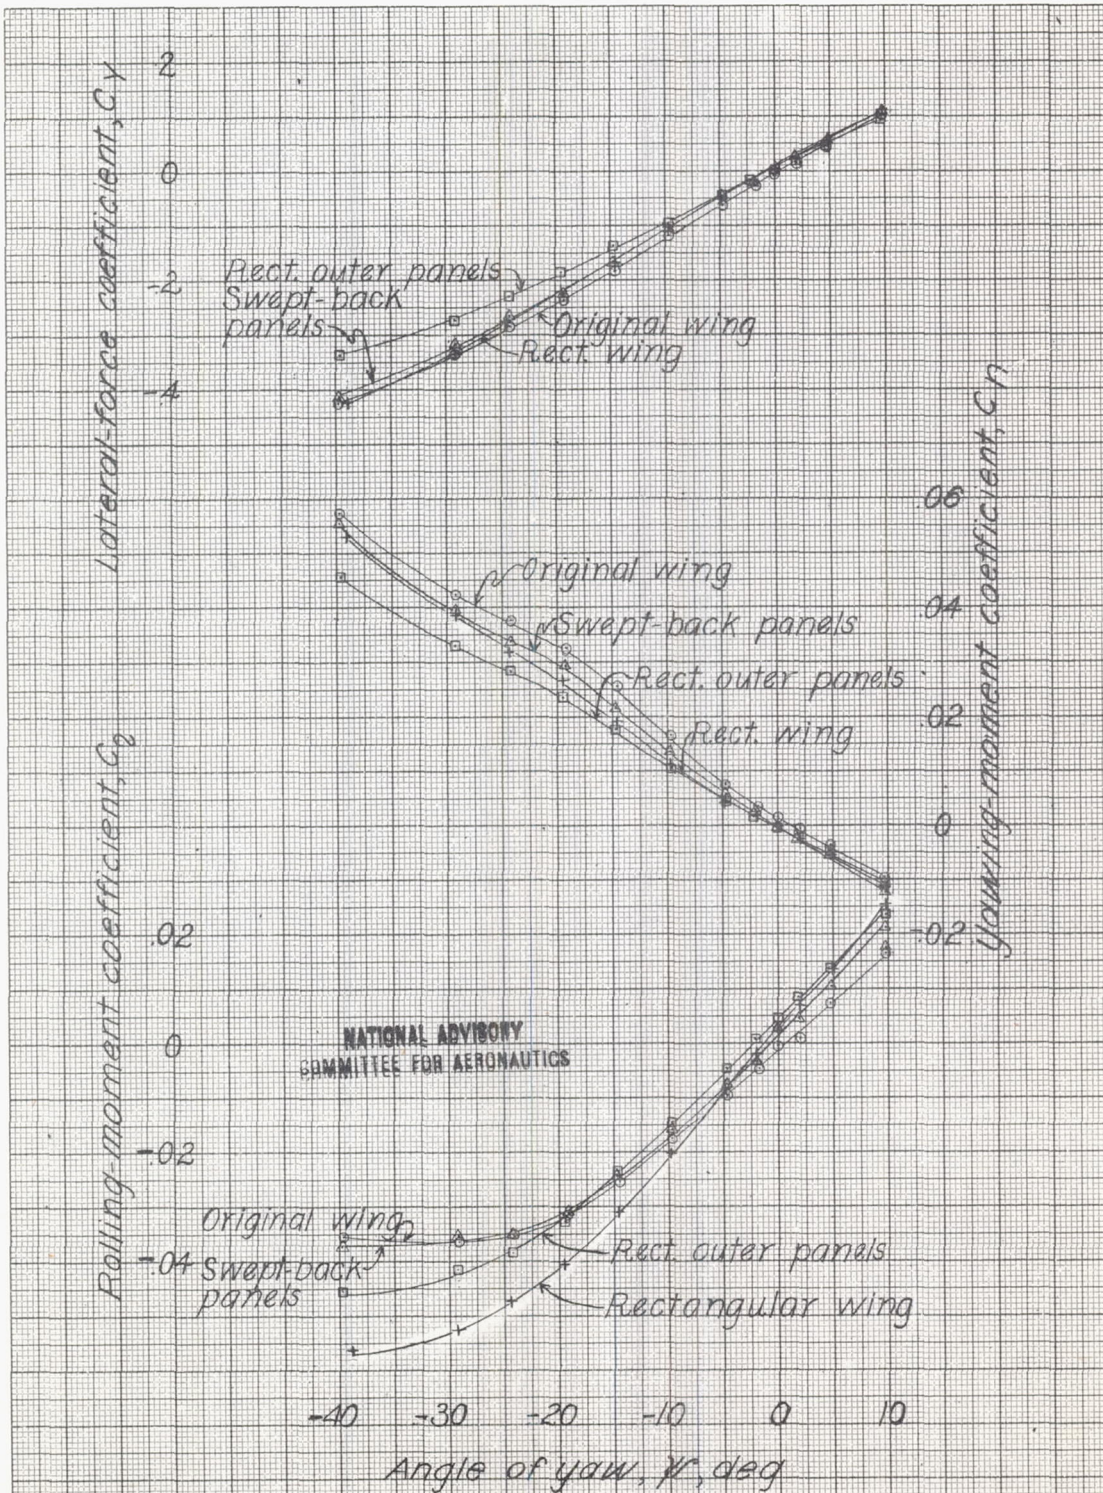 Lateral-force coefficient, Cy
.2
0
-.2
-.4
Rect. outer panels
Swept-back
panels
Original wing
Rect. wing
Yawing-moment coefficient, Cn
.06
.04
.02
0
-.02
Original wing
Swept-back panels
Rect. outer panels
Rect. wing
Rolling-moment coefficient, Cl
.02
0
-.02
-.04
NATIONAL ADVISORY
COMMITTEE FOR AERONAUTICS
Original wing
Swept-back
panels
Rect. outer panels
Rectangular wing
-40 -30 -20 -10 0 10
Angle of yaw, ψ, deg